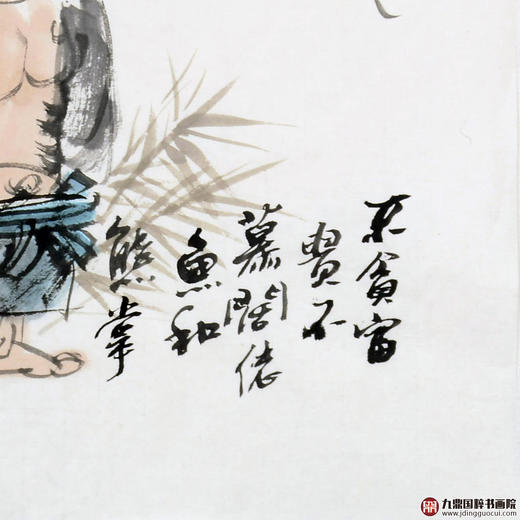 不貪富
貴不
慕闊佬
魚和
熊掌
九鼎国粹书画院
www.jdingguocui.com